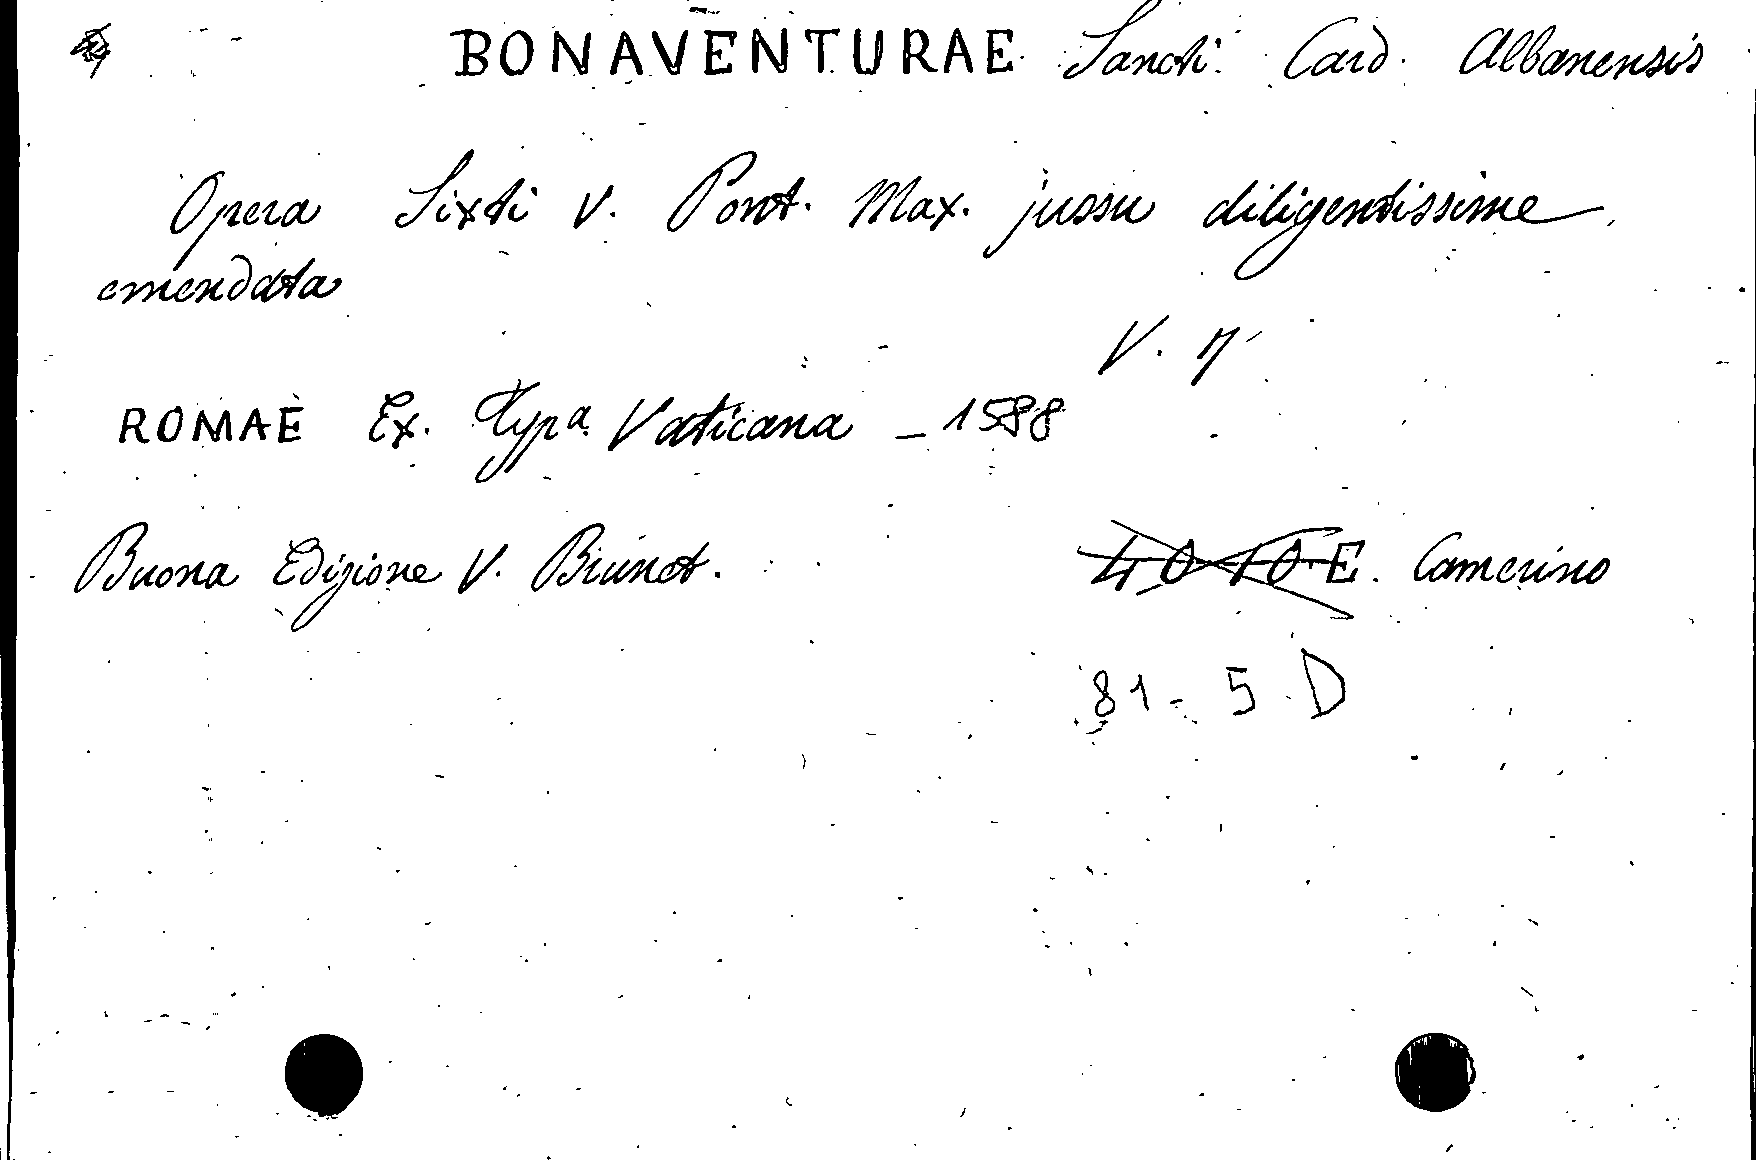 BONAVENTURAE Sancti Card. Albanensis
Opera Sixti V. Pont. Max. jussu diligentissime
emendata
V. 7
ROMAE Ex. Typa Vaticana - 1588
Buona Edizione V. Brunet. 40 10. E. Camerino
81 - 5. D